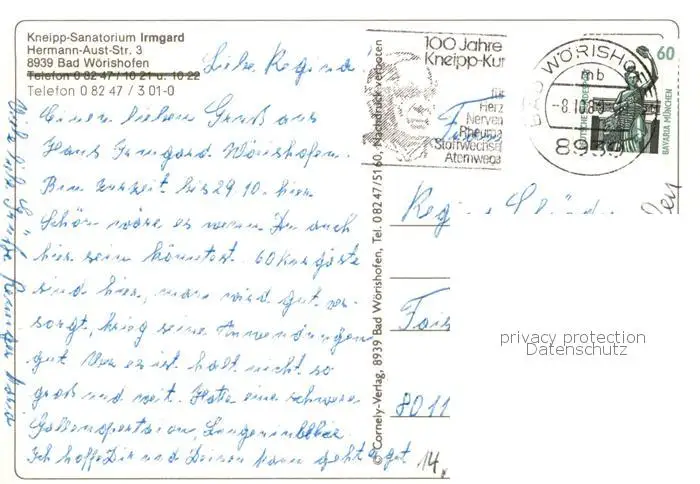 Kneipp-Sanatorium Irmgard
Hermann-Aust-Str. 3
8939 Bad Wörishofen
Telefon 0 82 47 / 10 21 u. 10 22
Telefon 0 82 47 / 3 01-0
Liebe Regina!
Einen lieben Gruß aus
Haus Irmgard Wörishofen.
Bin zurzeit bis 29.10. hier.
Schön wäre es wenn Du auch
hier sein könntest. 60 Kurgäste
sind hier, man wird gut ver-
sorgt, krieg seine Anwendungen
gut. Nur es ist halt nicht so
groß und weit. Hatte eine schwere
Gallenoperation,
Ich hoffe Dir und Deinen geht es gut
© Cornely-Verlag, 8939 Bad Wörishofen, Tel. 0 82 47/5160, Nachdruck verboten
100 Jahre
Kneipp-Kur
für
Herz
Nerven
Rheuma
Stoffwechsel
Atemwege
BAD WÖRISHOFEN
mb
-8.10.89
8939
60
DEUTSCHE BUNDESPOST
BAVARIA MÜNCHEN
Regina
8011
14.
privacy protection
Datenschutz